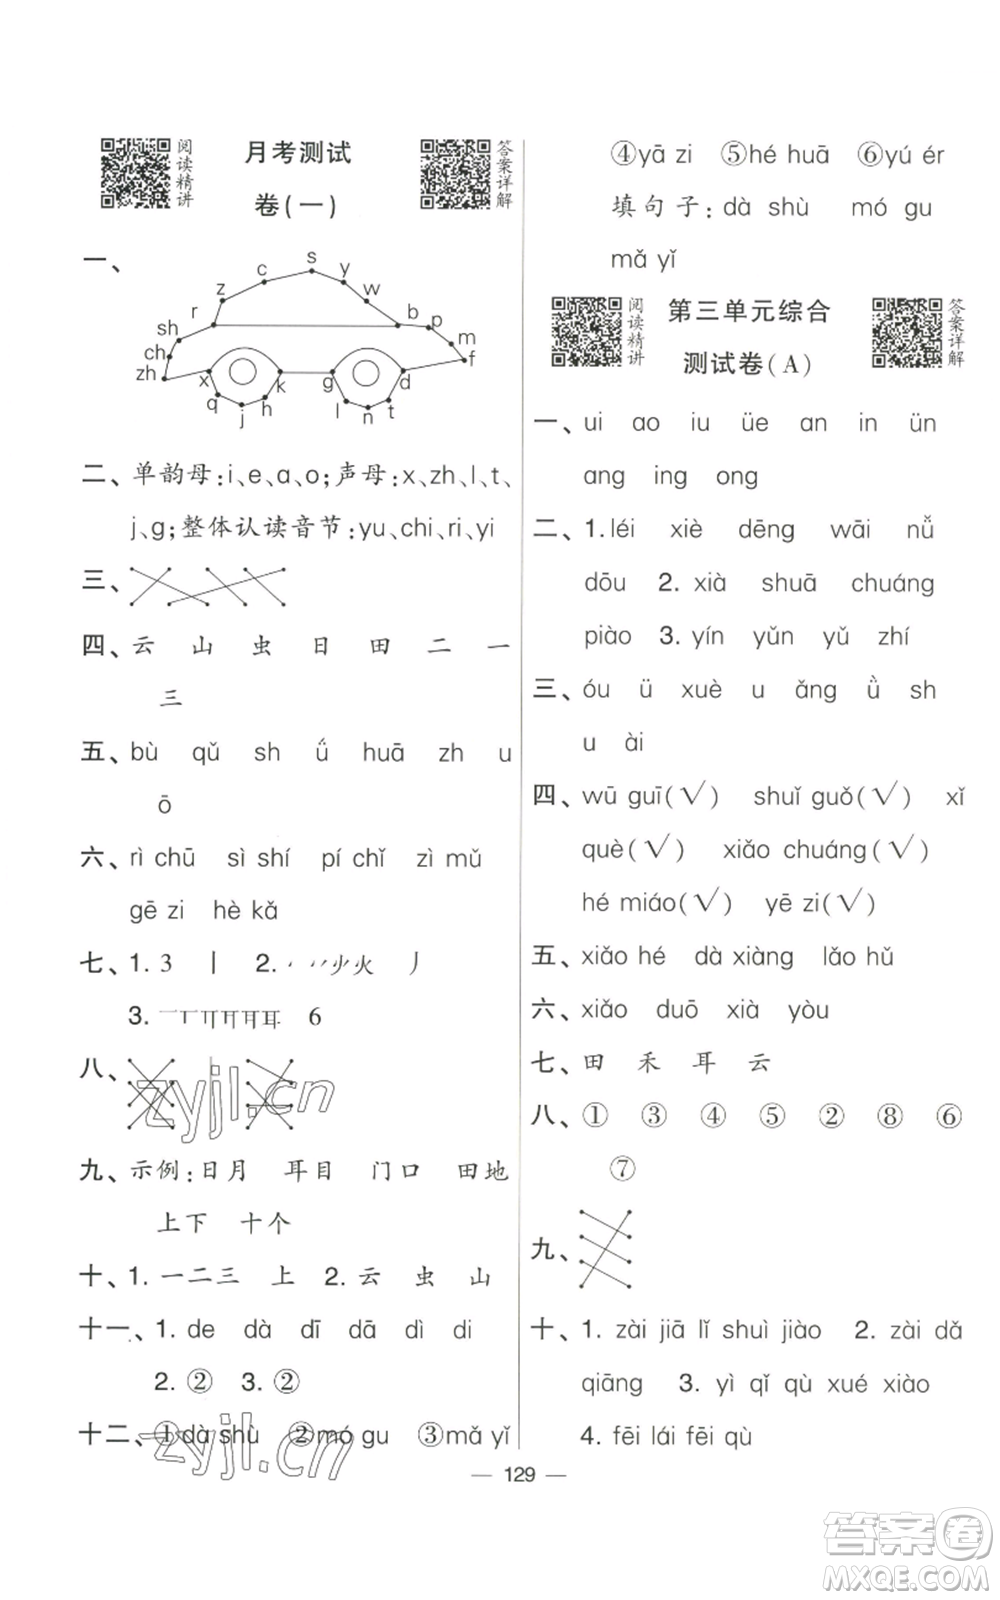 阅读精讲
月考测试
卷(一)
答案详解
一、
s
c
y
z
w
r
b
p
sh
m
ch
f
zh
x
k
g
d
q
j
h
l
n
t
二、单韵母:i、e、a、o;声母:x、zh、l、t、
j、g;整体认读音节:yu、chi、ri、yi
三、
四、云 山 虫 日 田 二 一
三
五、bù qǔ sh ǘ huā zh u
ō
六、rì chū sì shí pí chǐ zì mǔ
gē zi hè kǎ
七、1. 3 丨 2. 火 丿
3. 耳 6
八、
zyjl.cn
九、示例:日月 耳目 门口 田地
上下 十个
十、1. 一二三 上 2. 云 虫 山
十一、1. de dà dī dā dì di
2. ② 3. ②
十二、①dà shù ②mó gu ③mǎ yǐ
zyjl.cn
④yā zi ⑤hé huā ⑥yú ér
填句子:dà shù mó gu
mǎ yǐ
阅读精讲
第三单元综合
测试卷(A)
答案详解
一、ui ao iu üe an in ün
ang ing ong
二、1. léi xiè dēng wāi nǚ
dōu 2. xià shuā chuáng
piào 3. yín yǔn yǔ zhí
三、óu ü xuè u ǎng ǜ sh
u ài
四、wū guī(√) shuǐ guǒ(√) xǐ
què(√) xiǎo chuáng(√)
hé miáo(√) yē zi(√)
五、xiǎo hé dà xiàng lǎo hǔ
六、xiǎo duō xià yòu
七、田 禾 耳 云
八、① ③ ④ ⑤ ② ⑧ ⑥
⑦
九、
十、1. zài jiā lǐ shuì jiào 2. zài dǎ
qiāng 3. yì qǐ qù xué xiào
4. fēi lái fēi qù
— 129 —
答案卷
MXQE.COM